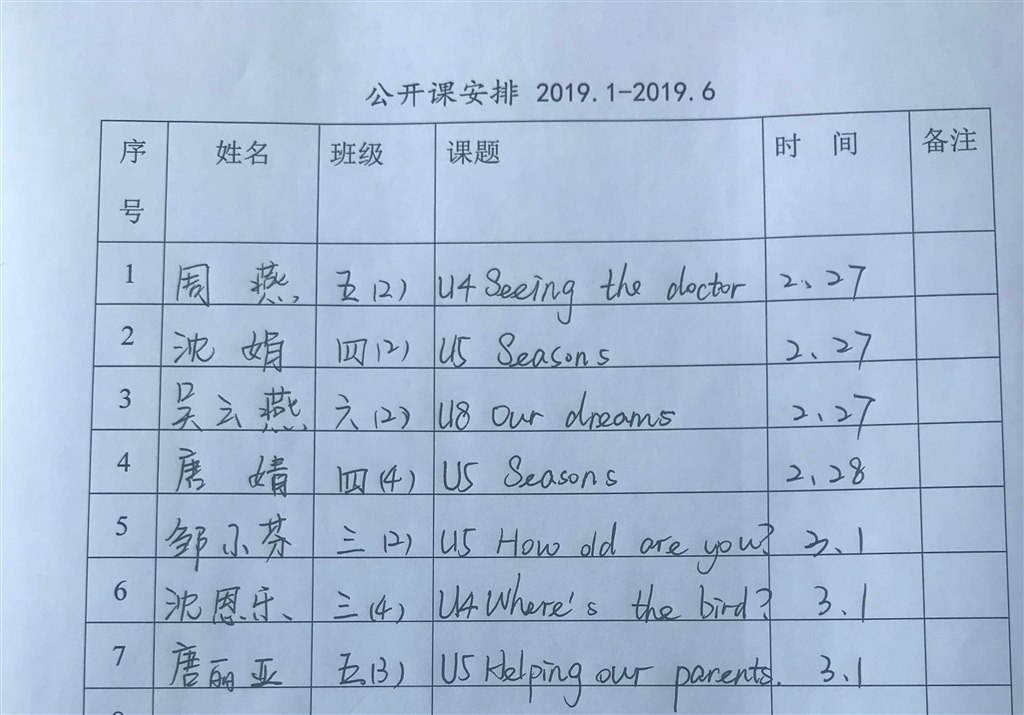 公开课安排 2019.1-2019.6
序号 姓名 班级 课题 时 间 备注
1 周燕 五(2) U4 Seeing the doctor 2、27
2 沈娟 四(2) U5 Seasons 2、27
3 吴云燕 六(2) U8 Our dreams 2、27
4 唐婧 四(4) U5 Seasons 2、28
5 邹小芬 三(2) U5 How old are you? 3、1
6 沈恩乐 三(4) U4 Where's the bird? 3.1
7 唐丽亚 五(3) U5 Helping our parents. 3.1